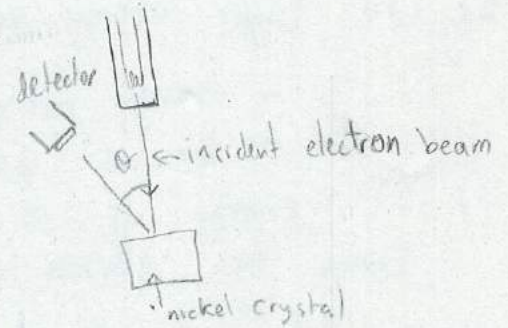 detector
θ ← incident electron beam
nickel crystal